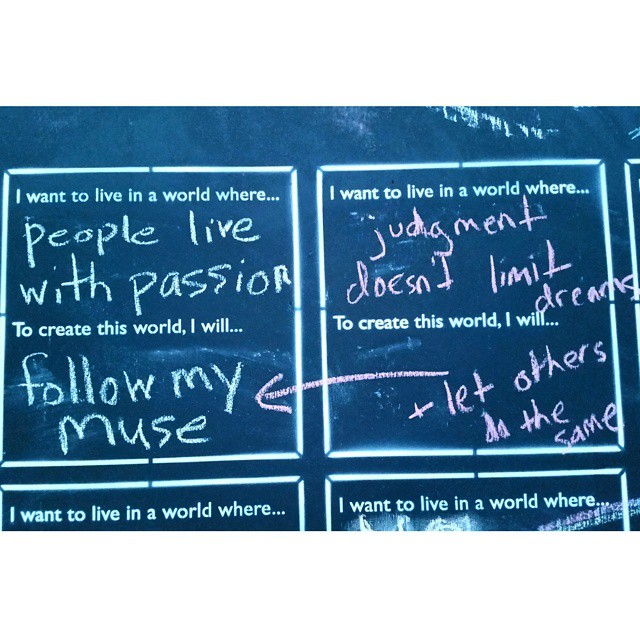 I want to live in a world where...
people live
with passion
To create this world, I will...
follow my
muse
I want to live in a world where...
judgment
doesn't limit
dreams
To create this world, I will...
+ let others
do the
same
I want to live in a world where...
I want to live in a world where...